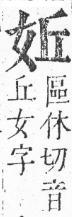 㚱
區休切音
丘女字